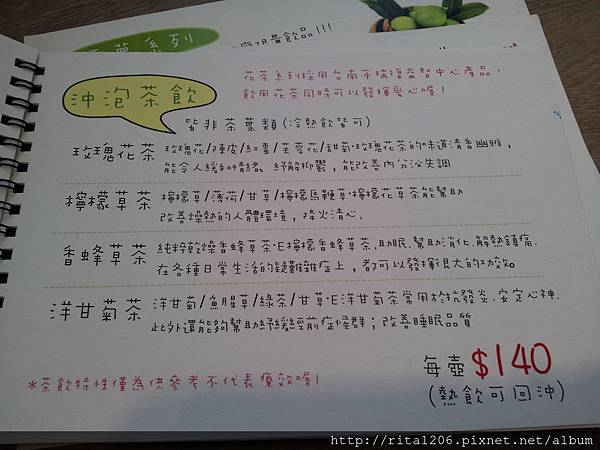 系列
飲品!!!
沖泡茶飲
花茶系列採用台南市瑞復益智中心產品,
飲用花茶同時可以發揮愛心喔!
皆非茶葉類(冷熱飲皆可)
玫瑰花茶 玫瑰花/陳皮/紅棗/芙蓉花/甜菊·玫瑰花茶的味道清香幽雅,
能令人緩和情緒、紓解抑鬱,能改善內分泌失調
檸檬草茶 檸檬草/薄荷/甘草/檸檬馬鞭草·檸檬花草茶能幫助
改善燥熱的人體環境,降火清心.
香蜂草茶 純粹乾燥香蜂草茶·E檸檬香蜂草茶.助眠.幫助消化.解熱鎮痛.
在各種日常生活的疑難雜症上,都可以發揮很大的功效。
洋甘菊茶 洋甘菊/魚腥草/綠茶/甘草·E洋甘菊茶常用於抗發炎.安定心神.
此外還能夠幫助紓緩經前症候群;改善睡眠品質
每壺$140
(熱飲可回沖)
*茶飲特性僅為供參考不代表療效喔!
http://rita1206.pixnet.net/album